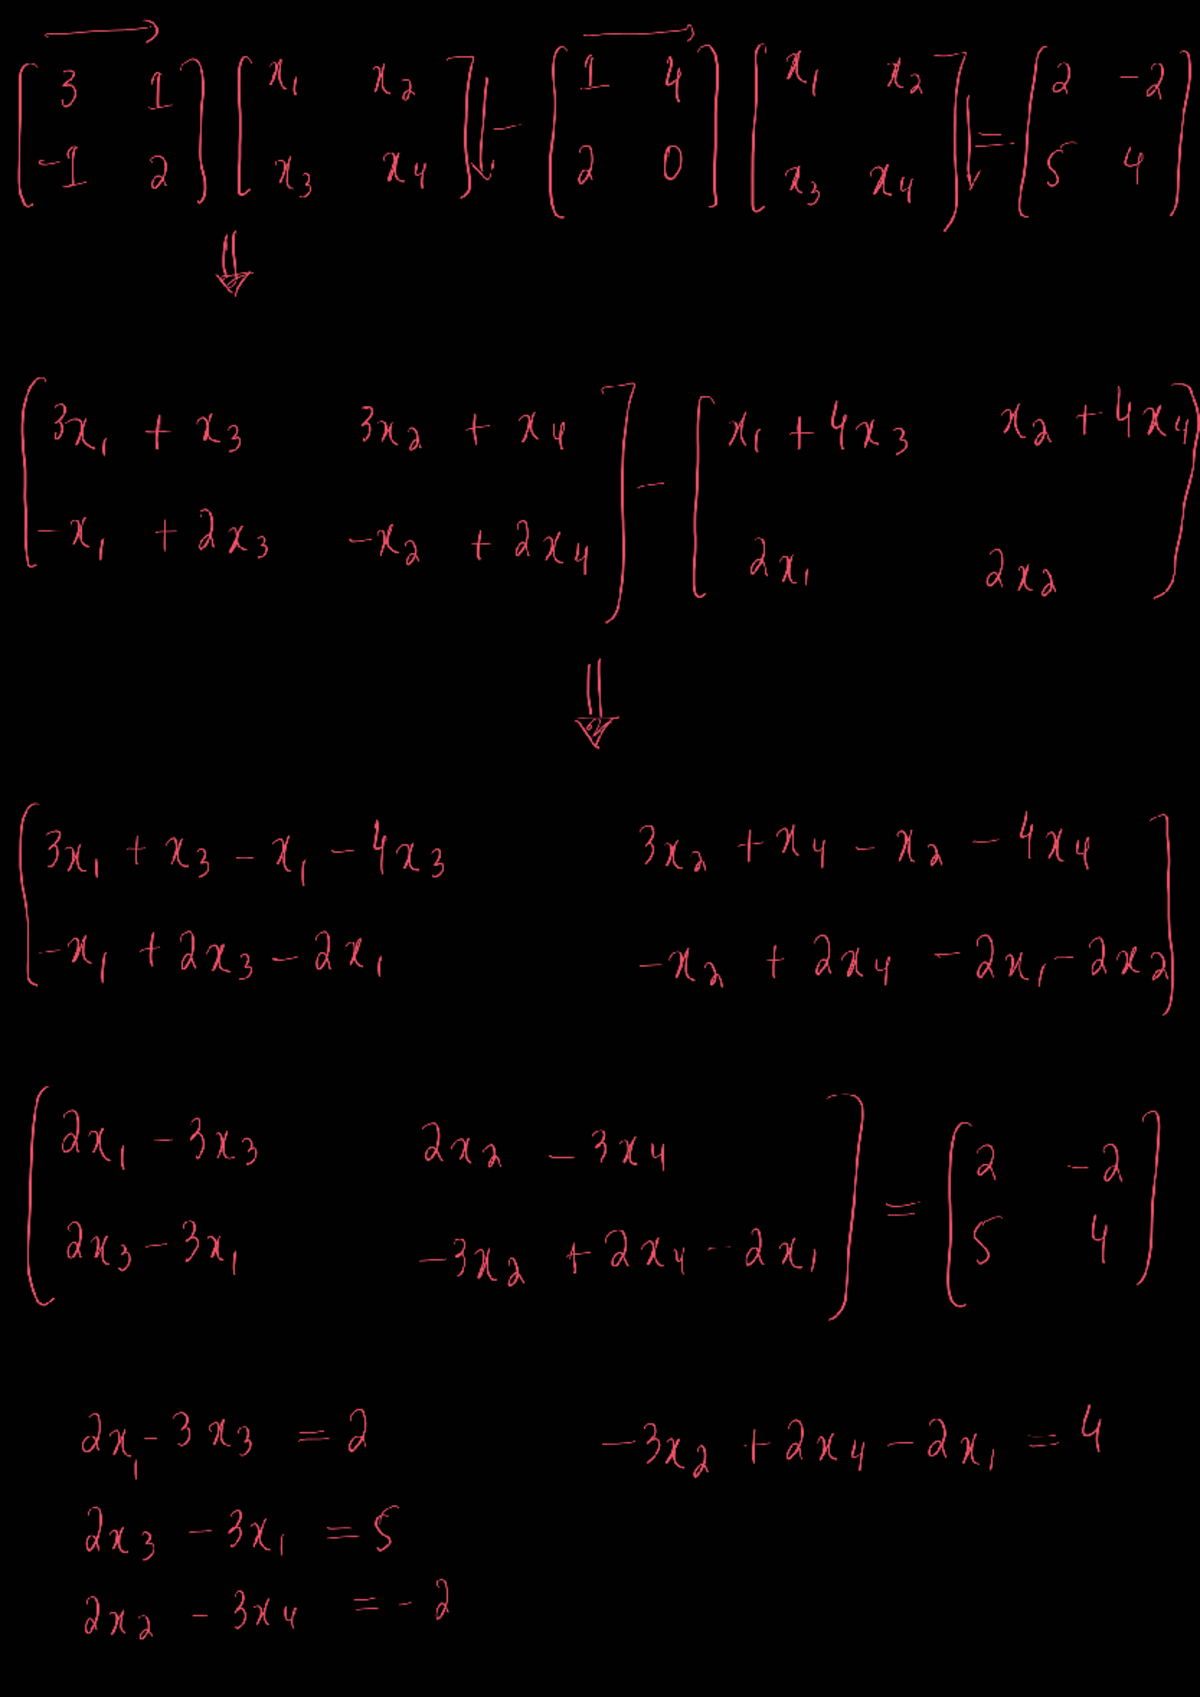 [3 1 -1 2] [x₁ x₂ x₃ x₄] - [1 4 2 0] [x₁ x₂ x₃ x₄] = [2 -2 5 4]
[3x₁ + x₃ 3x₂ + x₄] - [x₁ + 4x₃ x₂ + 4x₄]
[-x₁ + 2x₃ -x₂ + 2x₄] [2x₁ 2x₂]
[3x₁ + x₃ - x₁ - 4x₃ 3x₂ + x₄ - x₂ - 4x₄]
[-x₁ + 2x₃ - 2x₁ -x₂ + 2x₄ - 2x₁ - 2x₂]
[2x₁ - 3x₃ 2x₂ - 3x₄] = [2 -2]
[2x₃ - 3x₁ -3x₂ + 2x₄ - 2x₁] [5 4]
2x₁ - 3x₃ = 2 -3x₂ + 2x₄ - 2x₁ = 4
2x₃ - 3x₁ = 5
2x₂ - 3x₄ = -2